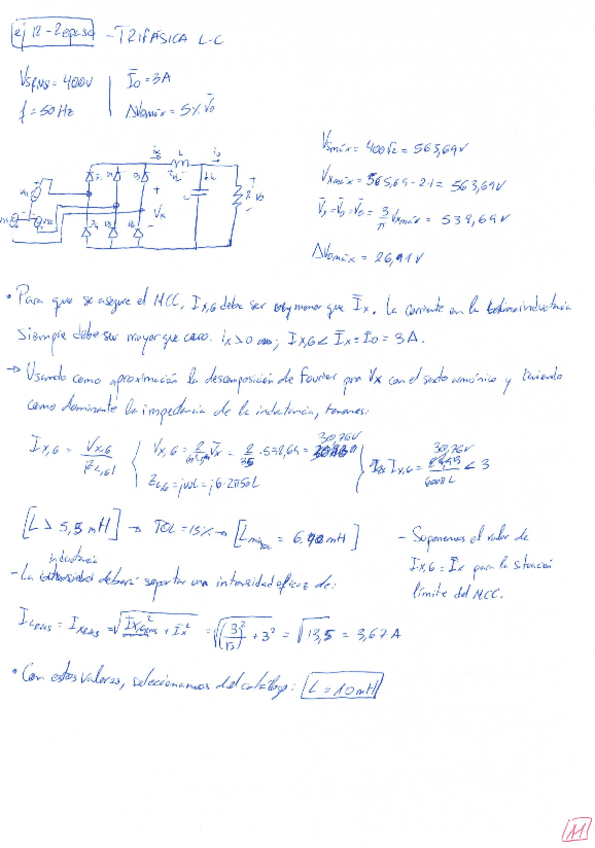 ej 12 - Repaso - TRIFÁSICA L-C
VsRMS = 400V Īo = 3A
f = 50 Hz ΔVomáx = 5% V̄o
Vsmáx = 400√2 = 565,69V
Vxmáx = 565,69 - 2·1 = 563,69V
= 3/π Vxmáx = 538,69V
ΔVomáx = 26,91V
• Para que se asegure el MCC, Ix,6 debe ser menor que Īx. La corriente en la inductancia
siempre debe ser mayor que cero. ix>0 ; Ix,6 < Īx = Īo = 3A.
→ Usando como aproximación la descomposición de Fourier para Vx con el sexto armónico y teniendo
como dominante la impedancia de la inductancia, tenemos:
30,76V
Ix,6 = Vx,6 / |ZL,6| { Vx,6 = V̄x = 2/35 · 538,69 =
ZL,6 = jωL = j6·2π50L
Ix,6 = 30,76V / 600πL < 3
[L > 5,5 mH] → TOL = 15% → [Lmin = mH]
- Suponemos el valor de
Ix,6 = Īx para la situación
límite del MCC.
inductancia
- La deberá soportar una intensidad eficaz de:
ILRMS = IxRMS = √(Ix,6RMS² + Īx²) = √((3/√2)² + 3²) = √13,5 = 3,67 A
• Con estos valores, seleccionamos del catálogo: L = 10mH
11